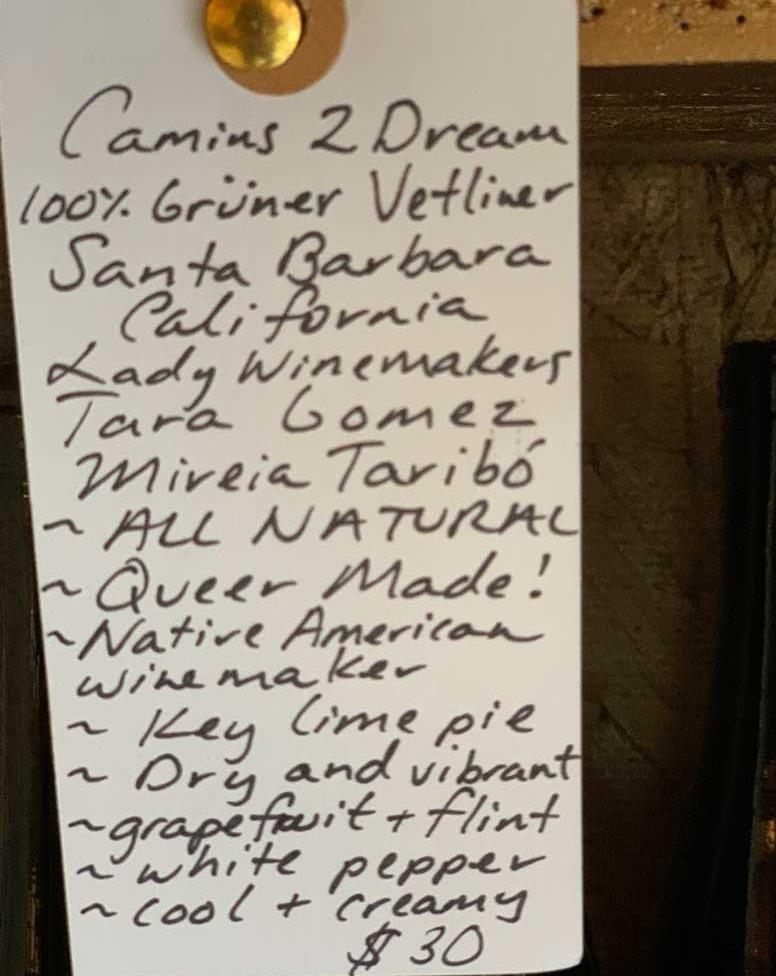 Camins 2 Dream
100% Grüner Vetliner
Santa Barbara
California
Lady Winemakers
Tara Gomez
Mireia Taribó
~ ALL NATURAL
~ Queer Made!
~ Native American
winemaker
~ Key lime pie
~ Dry and vibrant
~ grapefruit + flint
~ white pepper
~ cool + creamy
$ 30